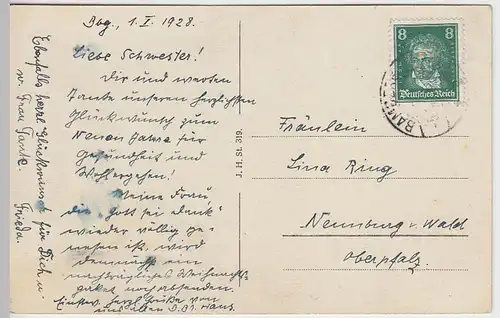 Bbg., 1. I. 1928.
Liebe Schwester!
Dir und werten
Tante unseren herzlichsten
Glückwunsch zum
Neuen Jahre für
Gesundheit und
Wohlergehen!
Meine Frau,
die „Gott sei dank"
wieder völlig ge-
nesen ist, wird
demnächst ein
nachträgliches Weihnachts-
paket noch absenden.
Einstw. herzl. Grüße von
uns allen D. Br. Hans.
Ebenfalls herzl. Glückwunsch für Dich u.
w. Frau Tante.
Frieda.
J. H. St. 319.
8 8
Deutsches Reich
BAM
Fräulein
Lina Ring
Neunburg v. Wald
Oberpfalz.